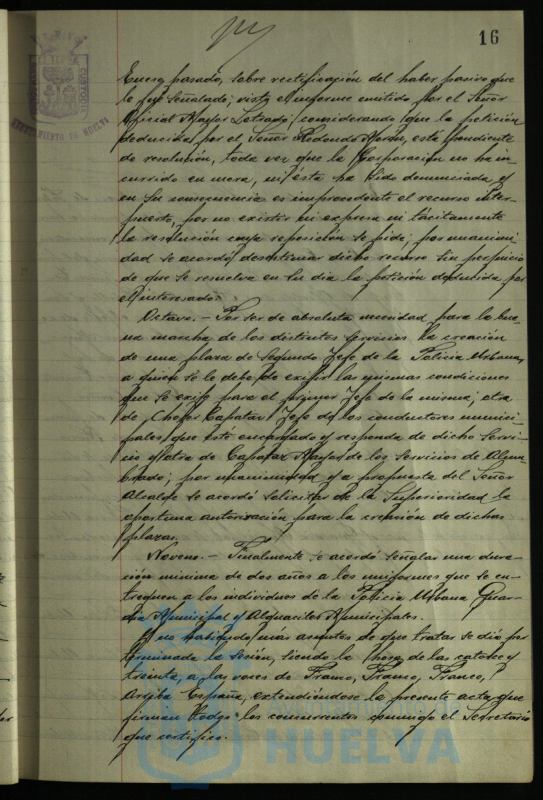 16
Enero pasado, sobre rectificación del haber pasivo que
le fué señalado; visto el informe emitido por el Señor
Oficial Mayor Letrado; considerando que la petición
deducida por el Señor Redondo Morón, está pendiente
de resolución, toda vez que la Corporación no ha in-
currido en mora, ni ésta ha sido denunciada y
en su consecuencia es improcedente el recurso inter-
puesto, por no existir ni expresa ni tácitamente
la resolución cuya reposición se pide; por unanimi-
dad se acordó desestimar dicho recurso sin perjuicio
de que se resuelva en su dia la petición deducida por
el interesado.
Octavo.- Por ser de absoluta necesidad para la bue-
na marcha de los distintos servicios la creación
de una plaza de Segundo Jefe de la Policia Urbana,
a quien se le debe de exijir las mismas condiciones
que se exije para el primer Jefe de la misma; otra
de Chofer Capataz Jefe de los conductores munici-
pales que esté encargado y responda de dicho servi-
cio y otra de Capataz Mayor de los Servicios de Alum-
brado; por unanimidad y a propuesta del Señor
Alcalde se acordó solicitar de la Superioridad la
oportuna autorización para la creación de dichas
plazas.
Noveno.- Finalmente se acordó señalar una dura-
ción minima de dos años a los uniformes que se en-
treguen a los individuos de la Policia Urbana Guar-
dia Municipal y Alguaciles Municipales.
Y no habiendo más asuntos de que tratar se dió por
terminada la sesión, siendo la hora de las catorce y
treinta, a las voces de Franco, Franco, Franco,
Arriba España, extendiéndose la presente acta que
firman todos los concurrentes conmigo el Secretario
que certifico.
AYUNTAMIENTO DE HUELVA
Ayuntamiento de
HUELVA